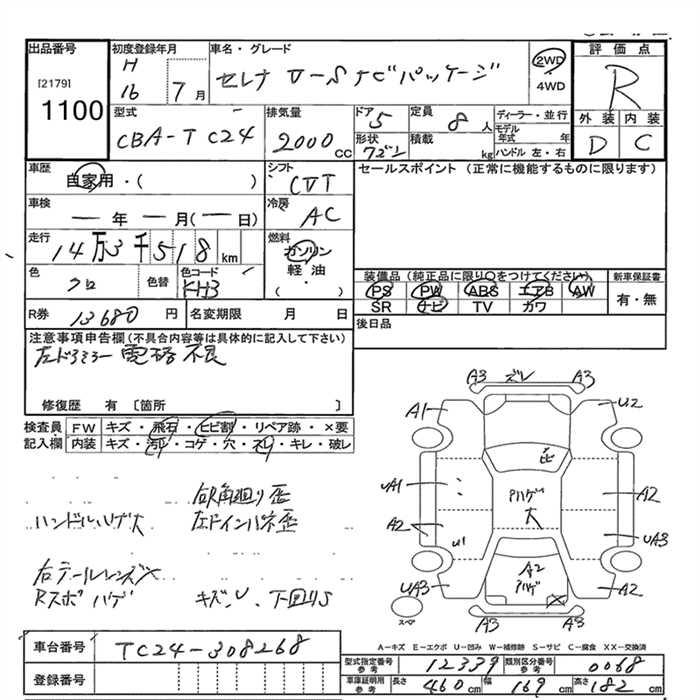 出品番号
[2179]
1100
初度登録年月
H
16 7月
車名・グレード
セレナ V-S ナビパッケージ
2WD
4WD
評価点
R
型式
CBA-TC24
排気量
2000cc
ドア
5
形状
ワゴン
定員
8人
積載
kg
ディーラー・並行
モデル年式 年
ハンドル 左・右
外装 内装
D C
車歴
自家用・( )
シフト
CVT
セールスポイント (正常に機能するものに限ります)
車検
― 年 ― 月(― 日)
冷房
AC
走行
14万3千518km
燃料
ガソリン
軽油・
( )
色
クロ
色替
色コード
KH3
装備品(純正品に限り○をつけてください)
PS PW ABS エアB AW
SR ナビ TV カワ
新車保証書
有・無
R券 13680円
名変期限 月 日
後日品
注意事項申告欄(不具合内容等は具体的に記入して下さい)
左ドアミラー電格不良
修復歴 有 [箇所 ]
検査員
記入欄
FW キズ・飛石・ヒビ割・リペア跡・×要
内装 キズ・汚レ・コゲ・穴・スレ・キレ・破レ
ハンドルハゲ大
左ドインパネ歪
右テールレンズ✕
Rスポ ハゲ
キズ、U、下回りS
A3 ズレ A3
A1 U2
ヒ
UA1
Aハゲ
大
A2
A2
U1
UA3
A2
Aハゲ
UA3
A2
A3 A3
スペア
車台番号 TC24-308268
登録番号
A-キズ E-エクボ U-凹み W-補修跡 S-サビ C-腐食 XX-交換済
型式指定番号
参考
12339
類別区分番号
参考
0068
車庫証明用
参考
長さ 460cm 幅 169cm 高さ 182cm